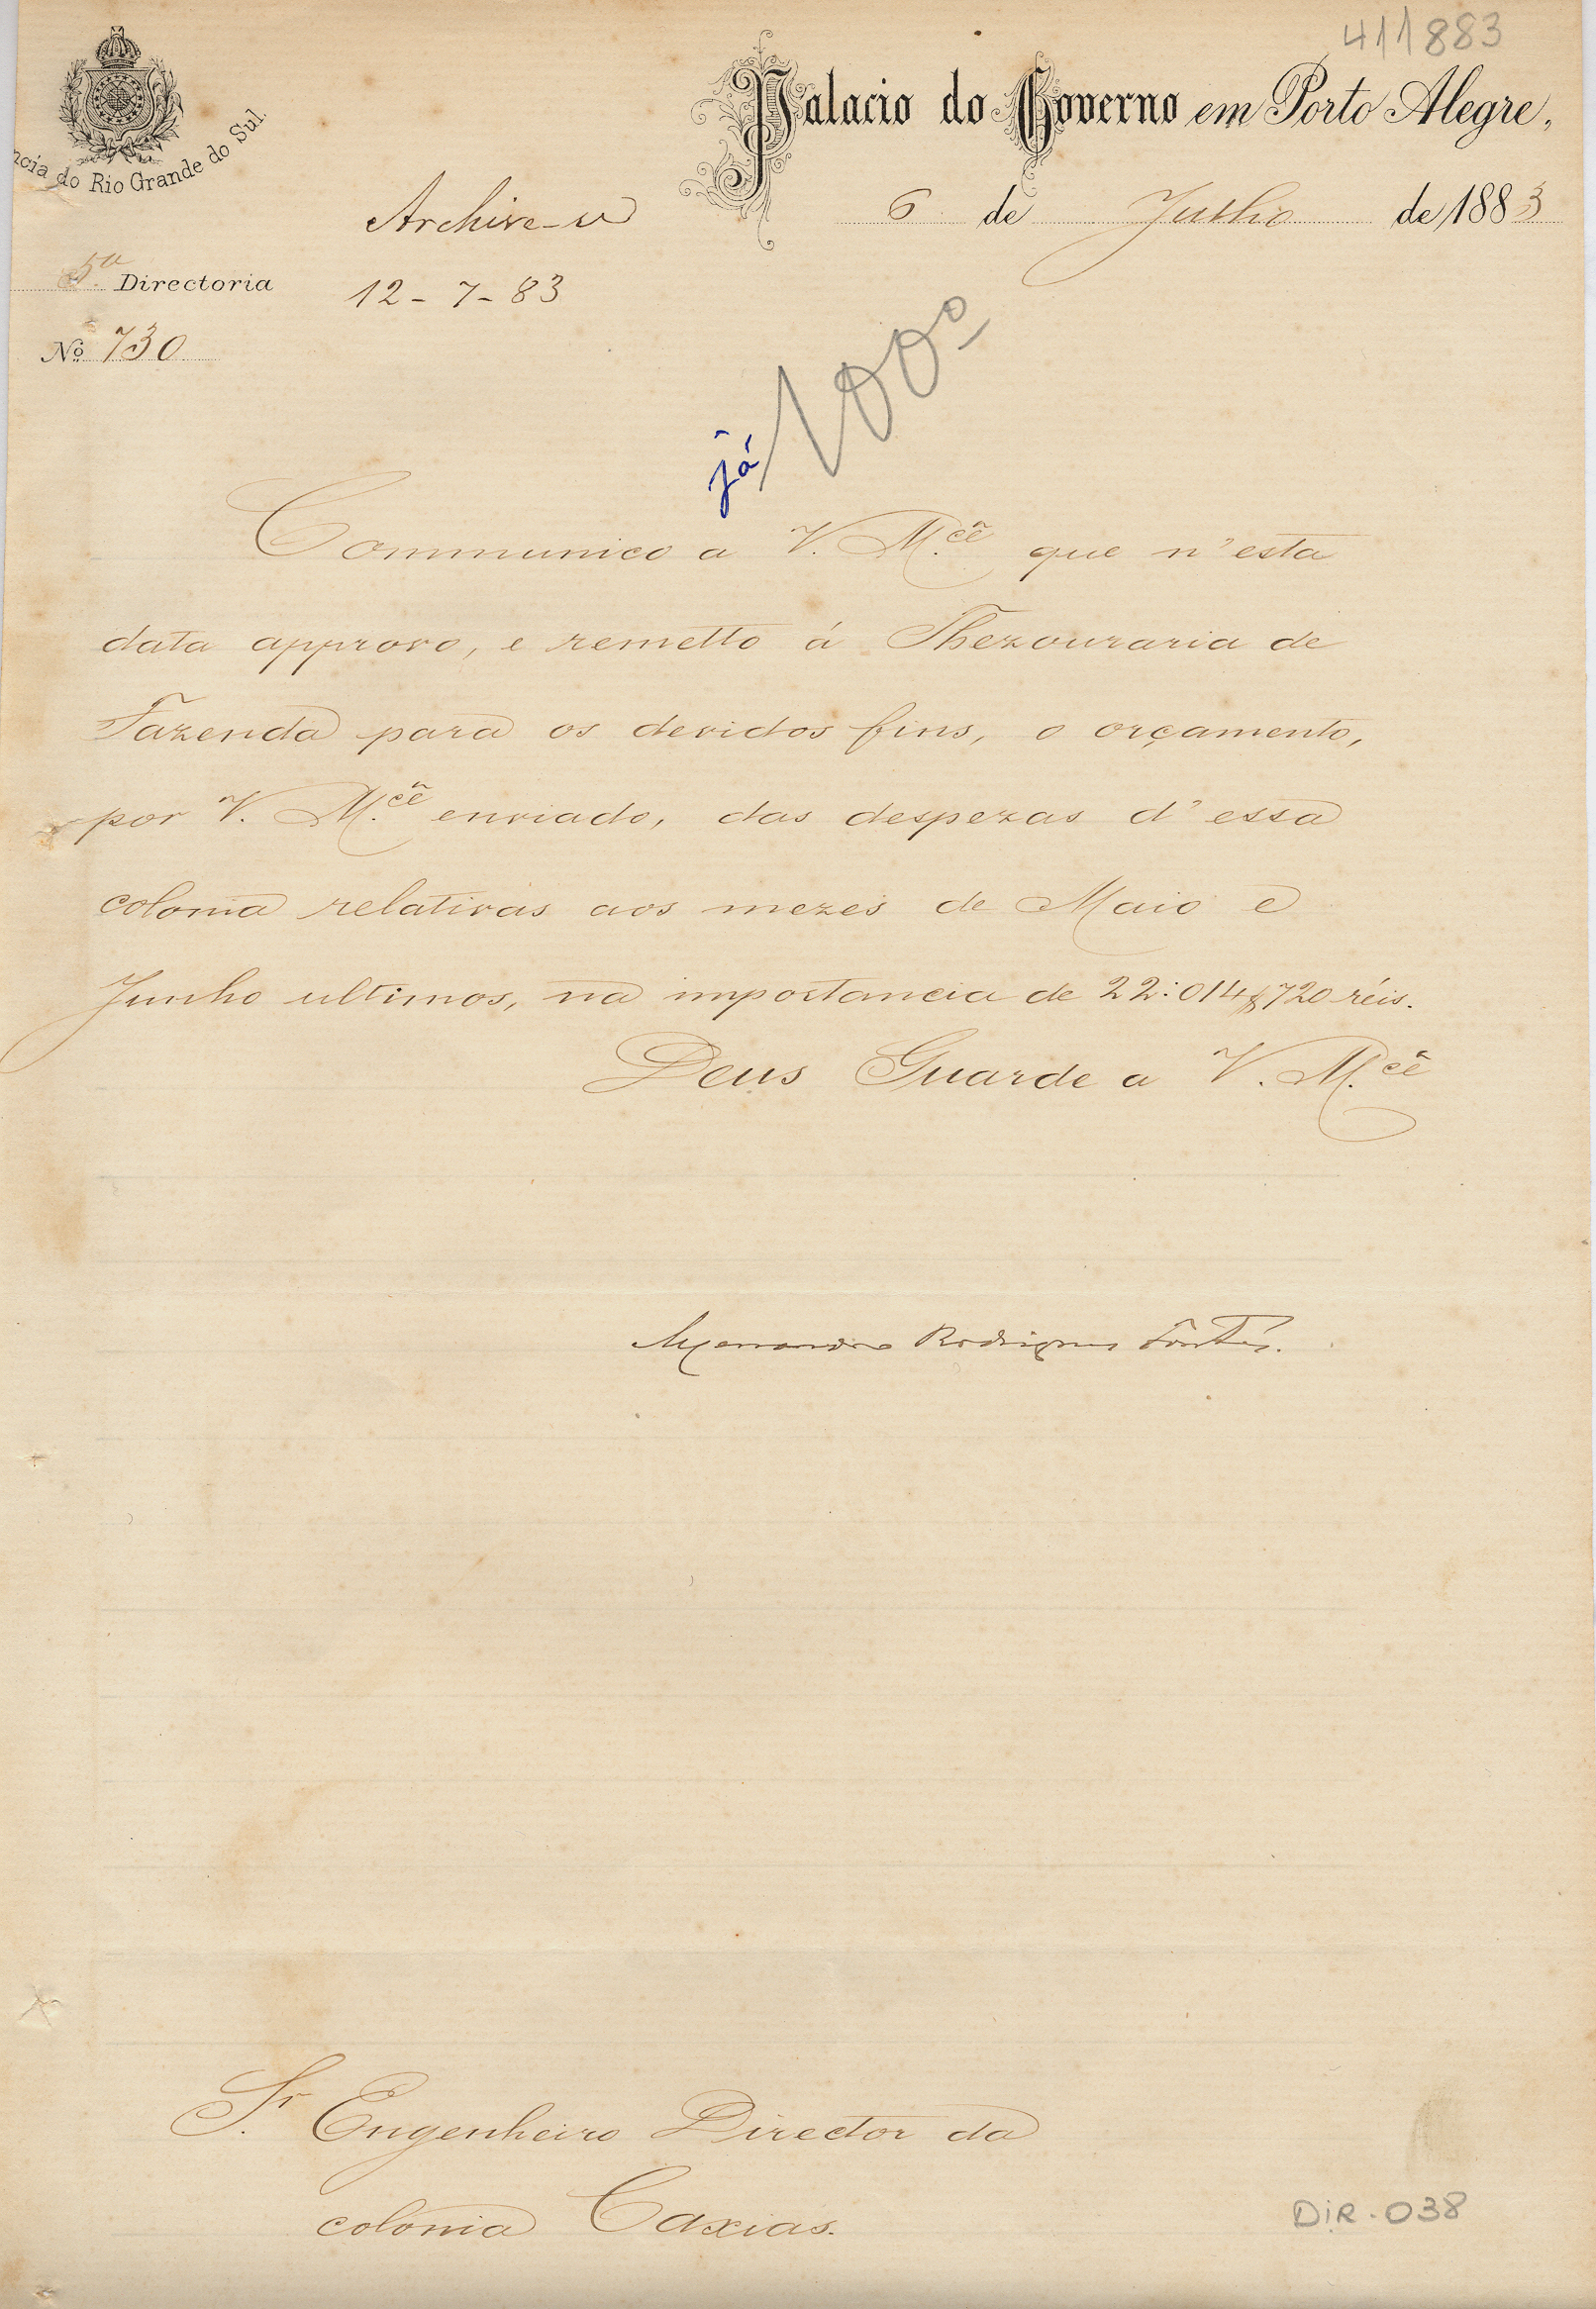 411883
Palacio do Governo em Porto Alegre,
ncia do Rio Grande do Sul.
6 de Julho de 1883
Archive-se
5ª Directoria
12-7-83
Nº 730
já 100º
Communico a V. M.cê que n'esta
data approvo, e remetto á Thezouraria de
Fazenda para os devidos fins, o orçamento,
por V. M.cê enviado, das despezas d'essa
colonia relativas aos mezes de Maio e
Junho ultimos, na importancia de 22:014$720 réis.
Deus Guarde a V. M.cê
Rodrigues
Sr. Engenheiro Director da
colonia Caxias.
DIR-038